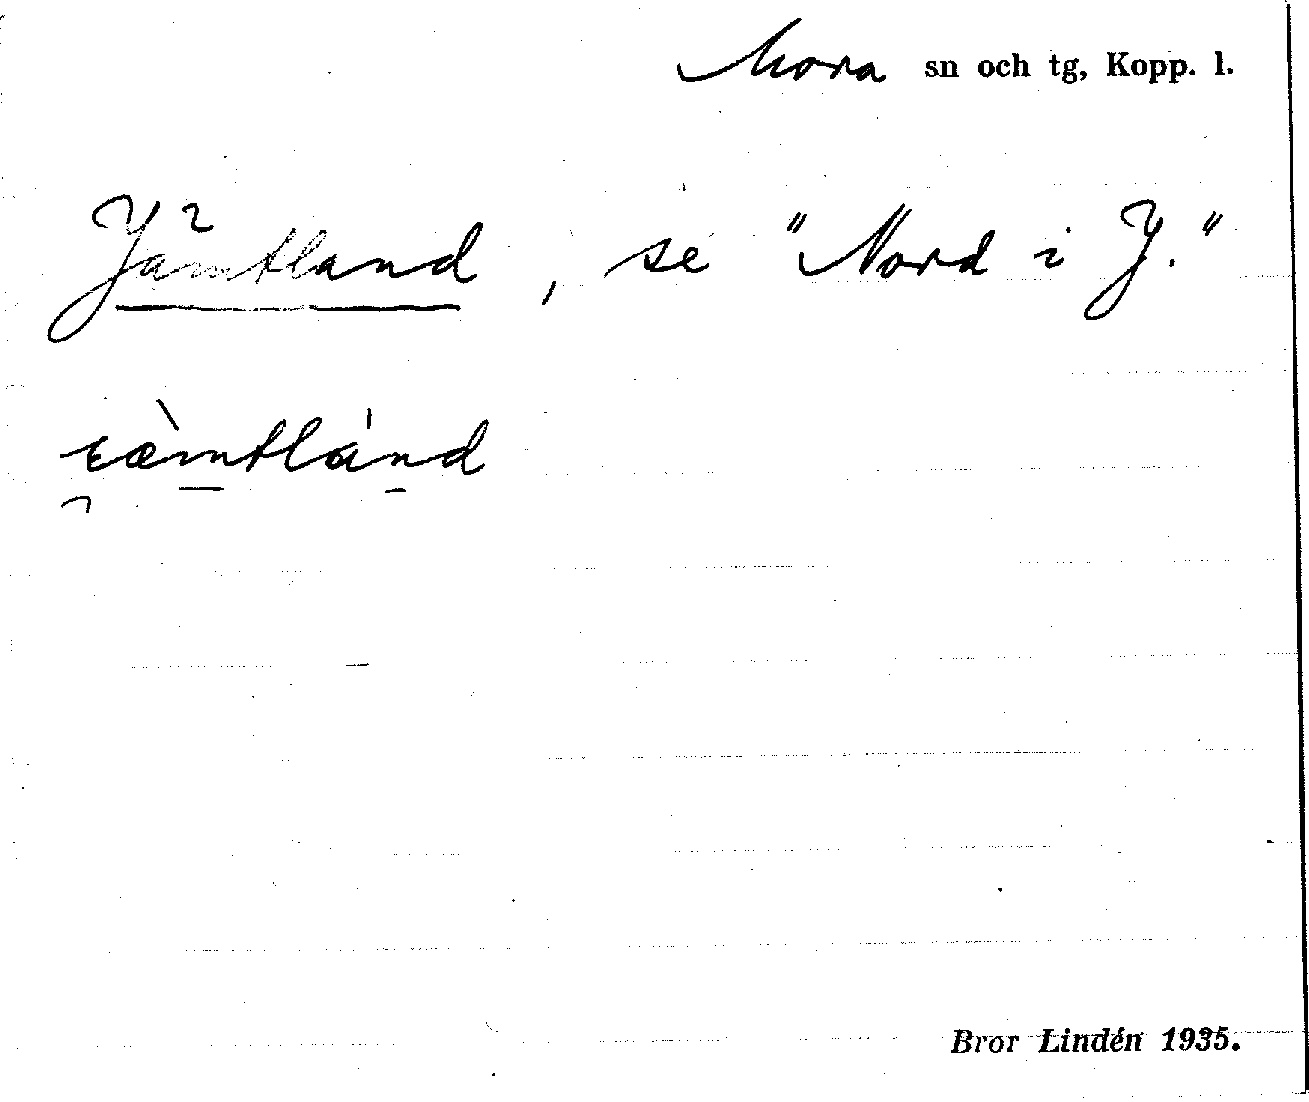 Mora sn och tg, Kopp. l.
Jämtland, se "Nord i J."
Bror Lindén 1935.